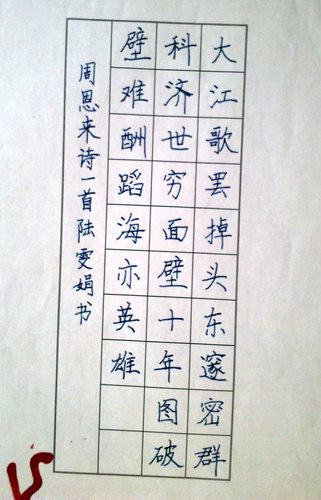 大江歌罢掉头东邃密群
科济世穷面壁十年图破
壁难酬蹈海亦英雄
周恩来诗一首陆雯娟书